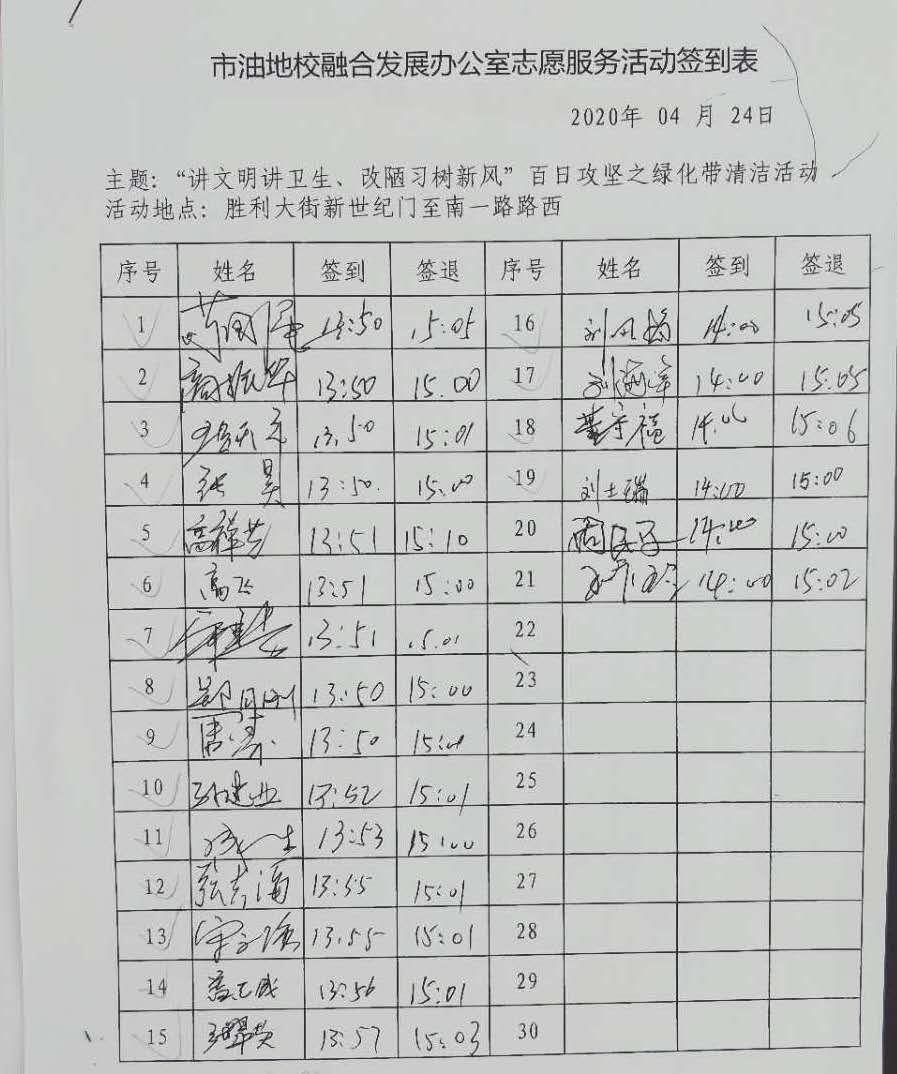 市油地校融合发展办公室志愿服务活动签到表
2020年 04 月 24日
主题：“讲文明讲卫生、改陋习树新风”百日攻坚之绿化带清洁活动
活动地点：胜利大街新世纪门至南一路路西
序号 姓名 签到 签退 序号 姓名 签到 签退
1 13:50 15:05 16 14:00 15:05
2 高振华 13:50 15:00 17 刘海洋 14:00 15:05
3 13:50 15:01 18 董宗福 14:00 15:06
4 张昊 13:50. 15:00 19 刘士瑞 14:00 15:00
5 高祥芳 13:51 15:10 20 14:00 15:00
6 高飞 13:51 15:00 21 14:00 15:02
7 13:51 15:01 22
8 13:50 15:00 23
9 13:50 15:01 24
10 孙建业 13:52 15:01 25
11 13:53 15:00 26
12 张志海 13:55 15:01 27
13 13:55 15:01 28
14 13:56 15:01 29
15 13:57 15:03 30